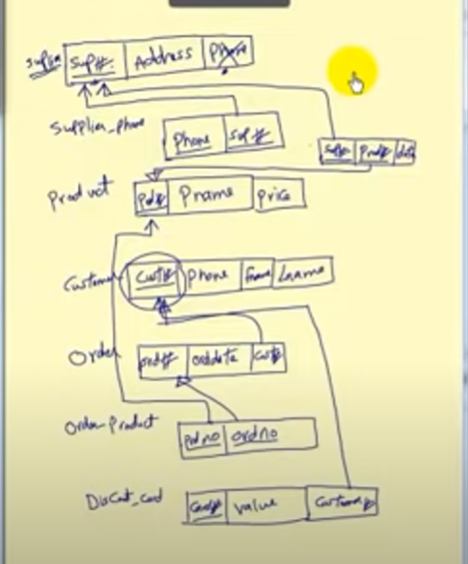 Sup#: Address Phone
Supplier_phone
Phone Sup#
Sup# Prod# date
Product Pd# Pname Price
Customer Cust# phone Fname Lname
Order ord# orddate Cust#
Order Product
pdno ordno
Card# value